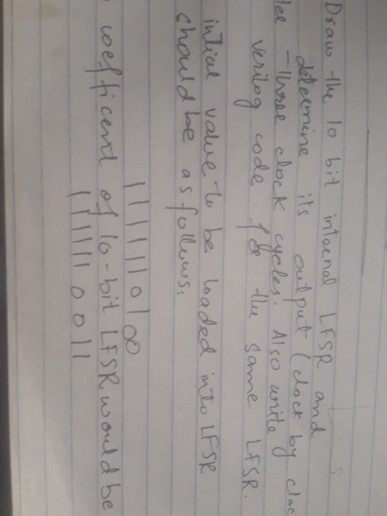 Draw the 10 bit internal LFSR and
determine its output (clock by cloc
three clock cycles. Also write
verilog code for the same LFSR.
intial value to be loaded into LFSR
should be as follows:
1111110100
coefficent of 10-bit LFSR would be
1111110011